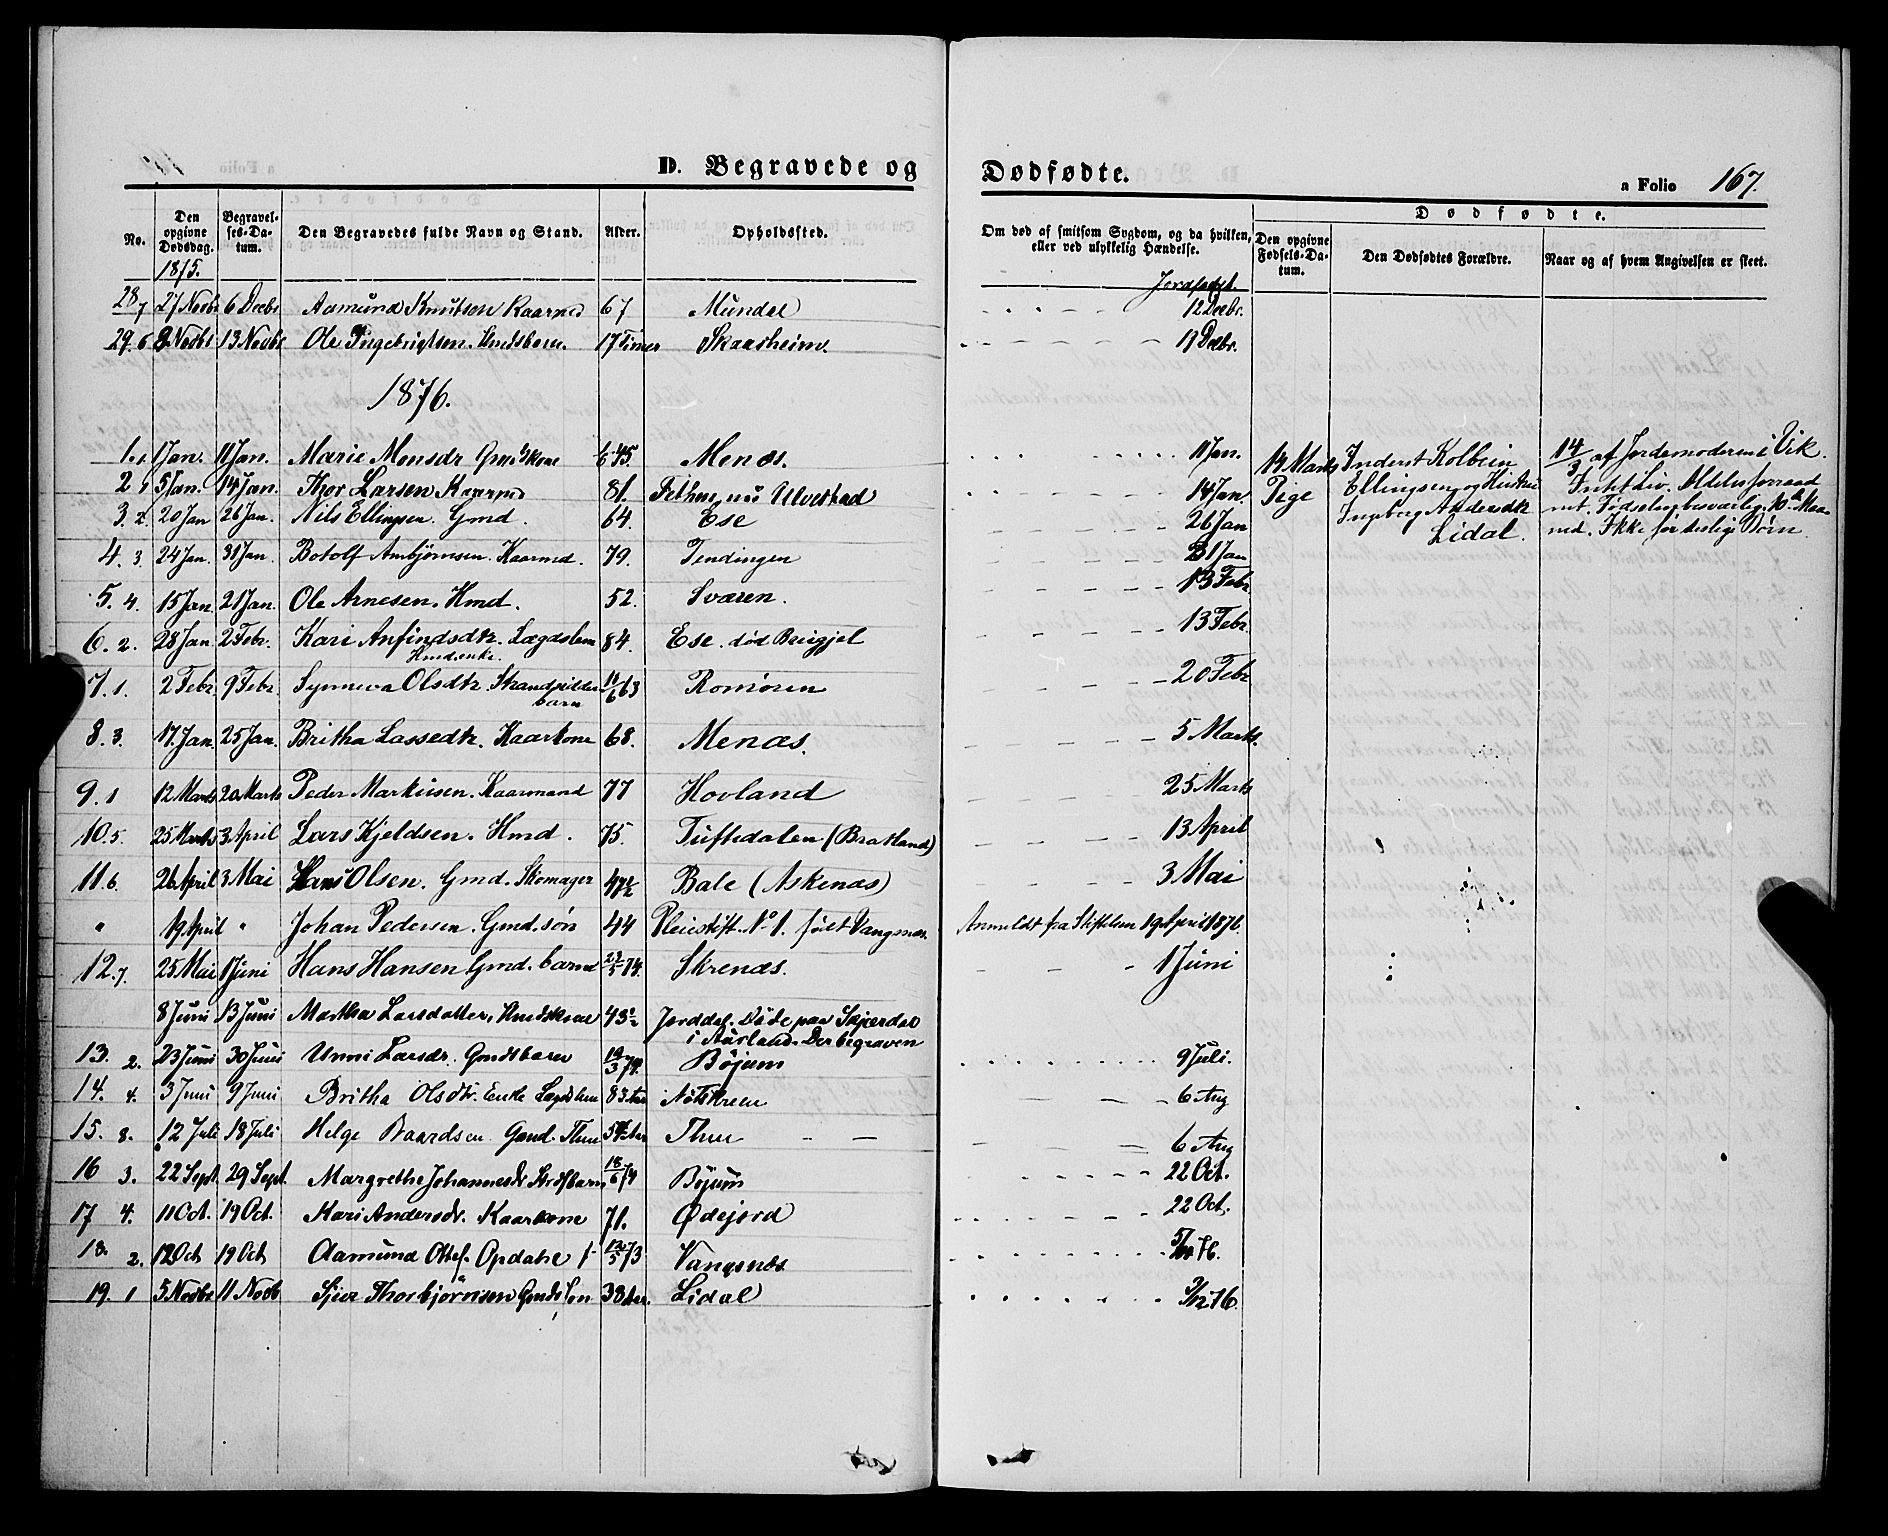 D. Begravede og Dødfødte.
a Folio 167.
No. Den opgivne Dødsdag. Begravelses-Datum. Den Begravedes fulde Navn og Stand. Alder. Opholdssted. Om død af smitsom Sygdom, og da hvilken, eller ved ulykkelig Hændelse. Dødfødte. Den opgivne Fødsels-Datum. Den Dødfødtes Forældre. Naar og af hvem Angivelsen er skeet.
1875.
Jordfæstet.
28 7 27 Novbr 6 Decbr Aamund Knutsen Kaarmd 67 Mundal 12 Decbr.
29. 6 8 Novbr 13 Novbr Ole Ingebrigtsen Hmdsbarn. 17 Timer Skaasheim. 19 Decbr.
1876.
1. 1 1 Jan. 11 Jan. Marie Monsdr Menæs. 11 Jan.
2 1 5 Jan. 14 Jan. Thor Larsen Kaarmd 81. nu Ulvestad 14 Jan
3. 2. 20 Jan 26 Jan. Nils Ellingsen. Gmd. 64. Ese 26 Jan
4. 3. 24 Jan. 31 Jan Botolf Ambjørnsen. Kaarmd. 79. Tendingen 31 Jan
5. 4. 15 Jan. 21 Jan. Ole Arnesen. Hmd. 52. Sværen. 13 Febr
6. 2. 28 Jan. 2 Febr. Kari Anfindsdtr. Lægdslem 84. Ese. død Breigjel 13 Febr
Hmdenke.
7. 1. 2 Febr 9 Febr Synneva Olsdtr. Strandsidder 11/6 63 Romøren 20 Febr
barn
8. 3. 17 Jan. 25 Jan. Britha Lassedtr. Kaarkone 68. Menæs. 5 Marts.
9. 1 12 Marts 20 Marts Peder Markusen. Kaarmand 77 Hovland 25 Marts
10. 5. 25 Marts 3 April Lars Kjeldsen. Hmd. 75. Tuftedalen (Bratland) 13 April
11. 6. 26 April 3 Mai Hans Olsen. Gmd. Skomager 47½ Bale (Askenæs) 3 Mai
" 19 April " Johan Pedersen. Gmd. søn 44 Pleiestift. No 1. født Vangsnæs. Anmeldt fra Stiftelsen 19 April 1876.
12. 7. 25 Mai 1 Juni Hans Hansen Gmd. barn 23/5 74. Skrenæs. 1 Juni
8 Juni 13 Juni Martha Larsdatter, Hmdskone 43½ Jorddal. Døde paa Skjerdal
i Aurland. Der begraven
13. 2. 23 Juni 30 Juni Unni Larsdr. Gmdsbarn 19/3 74. Bøjum 9 Juli.
14. 4. 3 Juni 9 Juni Britha Olsdtr. Enke Lægdslem 83 Aar Nøtskreen 6 Aug
15. 8. 12 Juli 18 Juli Helge Baardsen Gmd. Thue 54 Aar Thue 6 Aug
16 3. 22 Sept. 29 Sept. Margrethe Johannesdr 18/6 74 Bøjum 22 Oct.
17 4. 11 Oct. 19 Oct. Kari Andersdr. Kaarkone 71. Ødejord 22 Oct.
18. 2. 12 Oct 19 Oct Aamund Olsef. Opdahl 12/5 73 Vangsnæs
19. 1 5 Novbr 11 Novb Sjur Thorbjørnsen Gmds Søn 38 Aar. Lidal 3/12 76.
14 Marts Inderst Kolbein 14/3 af Jordemoderen i Vik.
Pige Ellingsen og Hustru Intet Liv. Aldeles forraad
Ingeborg Andersdtr net. Fødselen besværlig. 10de Maa
Lidal. ned. Ikke før deslige Børn.